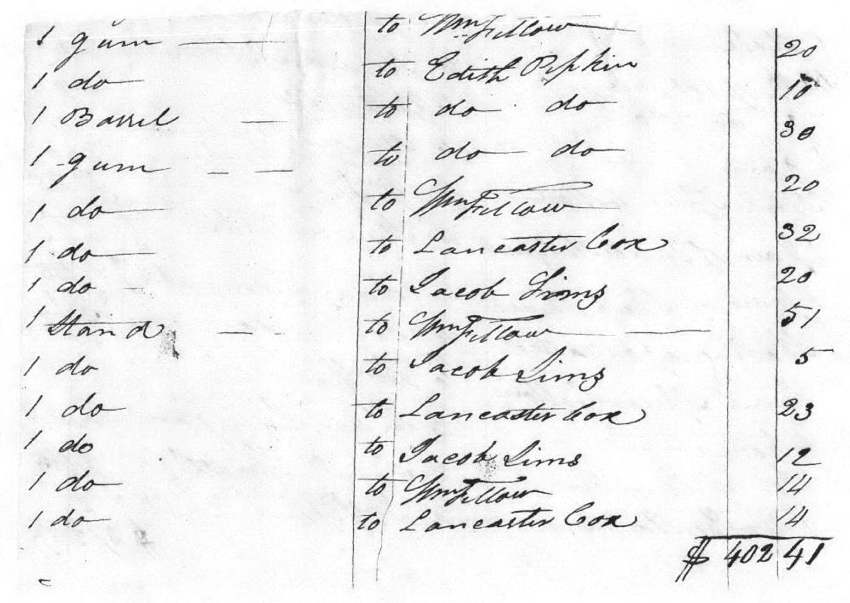 1 gum to Wm Fellow 20
1 do to Edith Pipkin 10
1 Barrel to do do 30
1 gum to do do 20
1 do to Wm Fellow 32
1 do to Lancaster Cox 20
1 do to Jacob Sims 51
1 Stand to Wm Fellow 5
1 do to Jacob Sims 23
1 do to Lancaster Cox 12
1 do to Jacob Sims 14
1 do to Wm Fellow 14
1 do to Lancaster Cox
$ 402 41